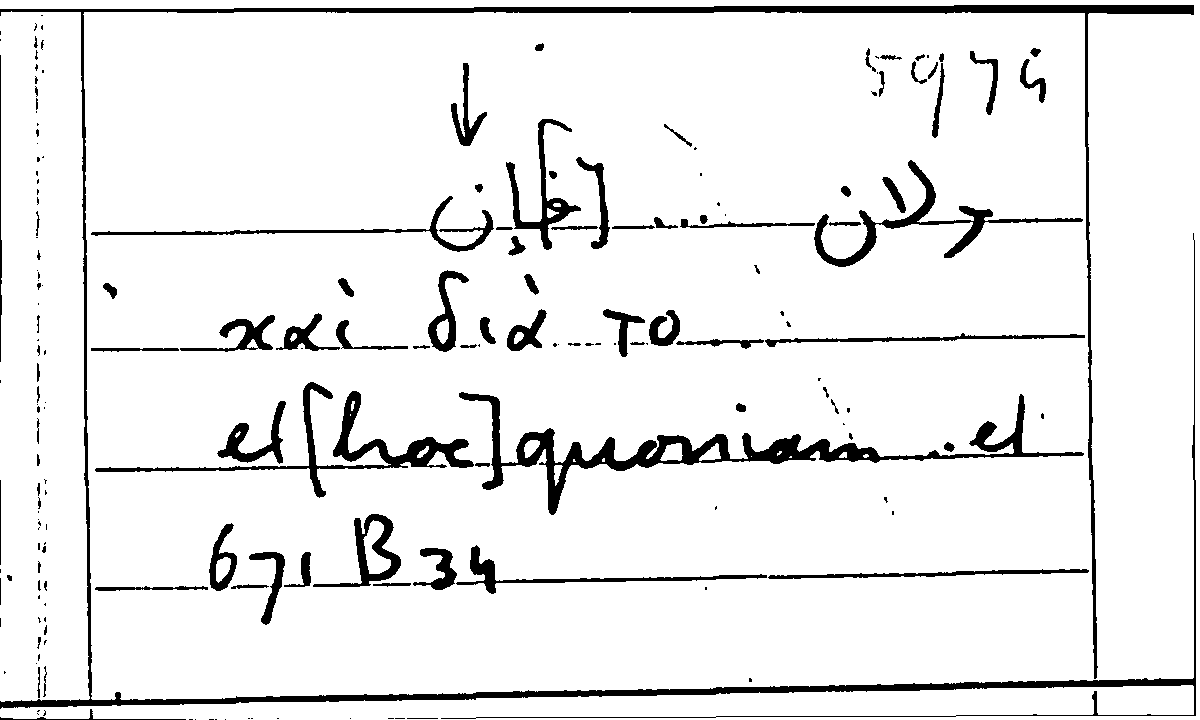 5974
↓
ولان ... [ف]إن
καὶ διὰ το ...
et [hoc] quoniam ... et
671 B 34